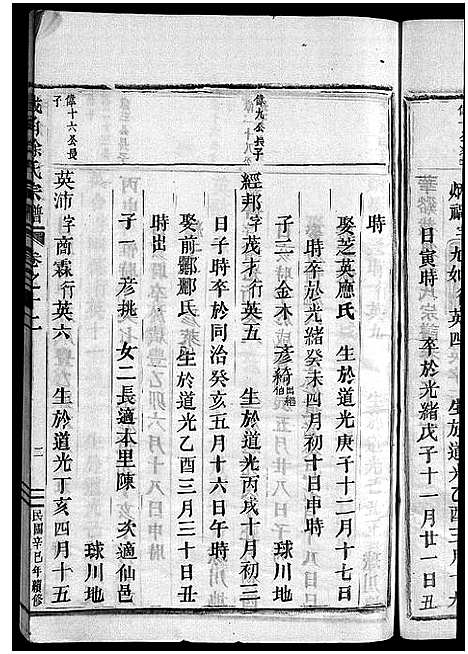 日寅時 卒於光緒戊子十一月廿一日丑
時
娶芝英應氏 生於道光庚子十二月十七日
時卒於光緒癸未四月初十日申時
子二 金木 彥綺出紹伯 球川地
偉九公長子
經邦字茂才行英五 生於道光丙戌十月初二
日子時卒於同治癸亥五月十六日午時
娶前酈酈氏 生於道光乙酉三月三十日丑
時出
子一 彥挑 女二長適本里陳 次適仙邑
球川地
偉十六公長子
英沛字商霖行英六 生於道光丁亥四月十五
徐氏宗譜 卷之十二
三
民國辛巳年續修